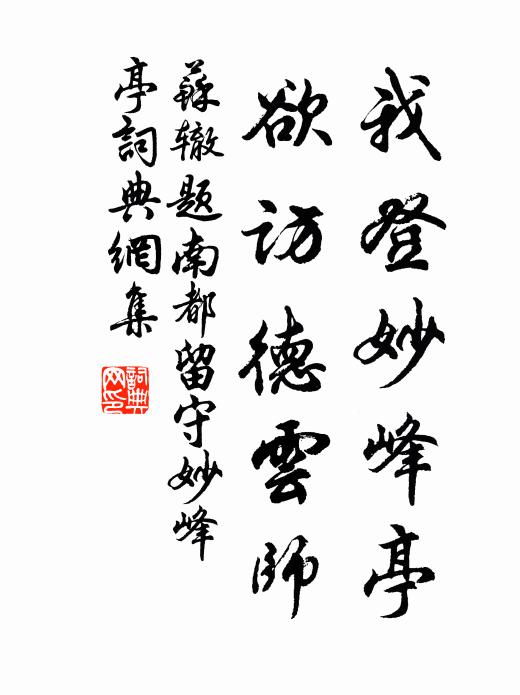 我登妙峰亭
欲访德雲師
蘇辙题南都留守妙峰
亭詞典網集
詞典网印